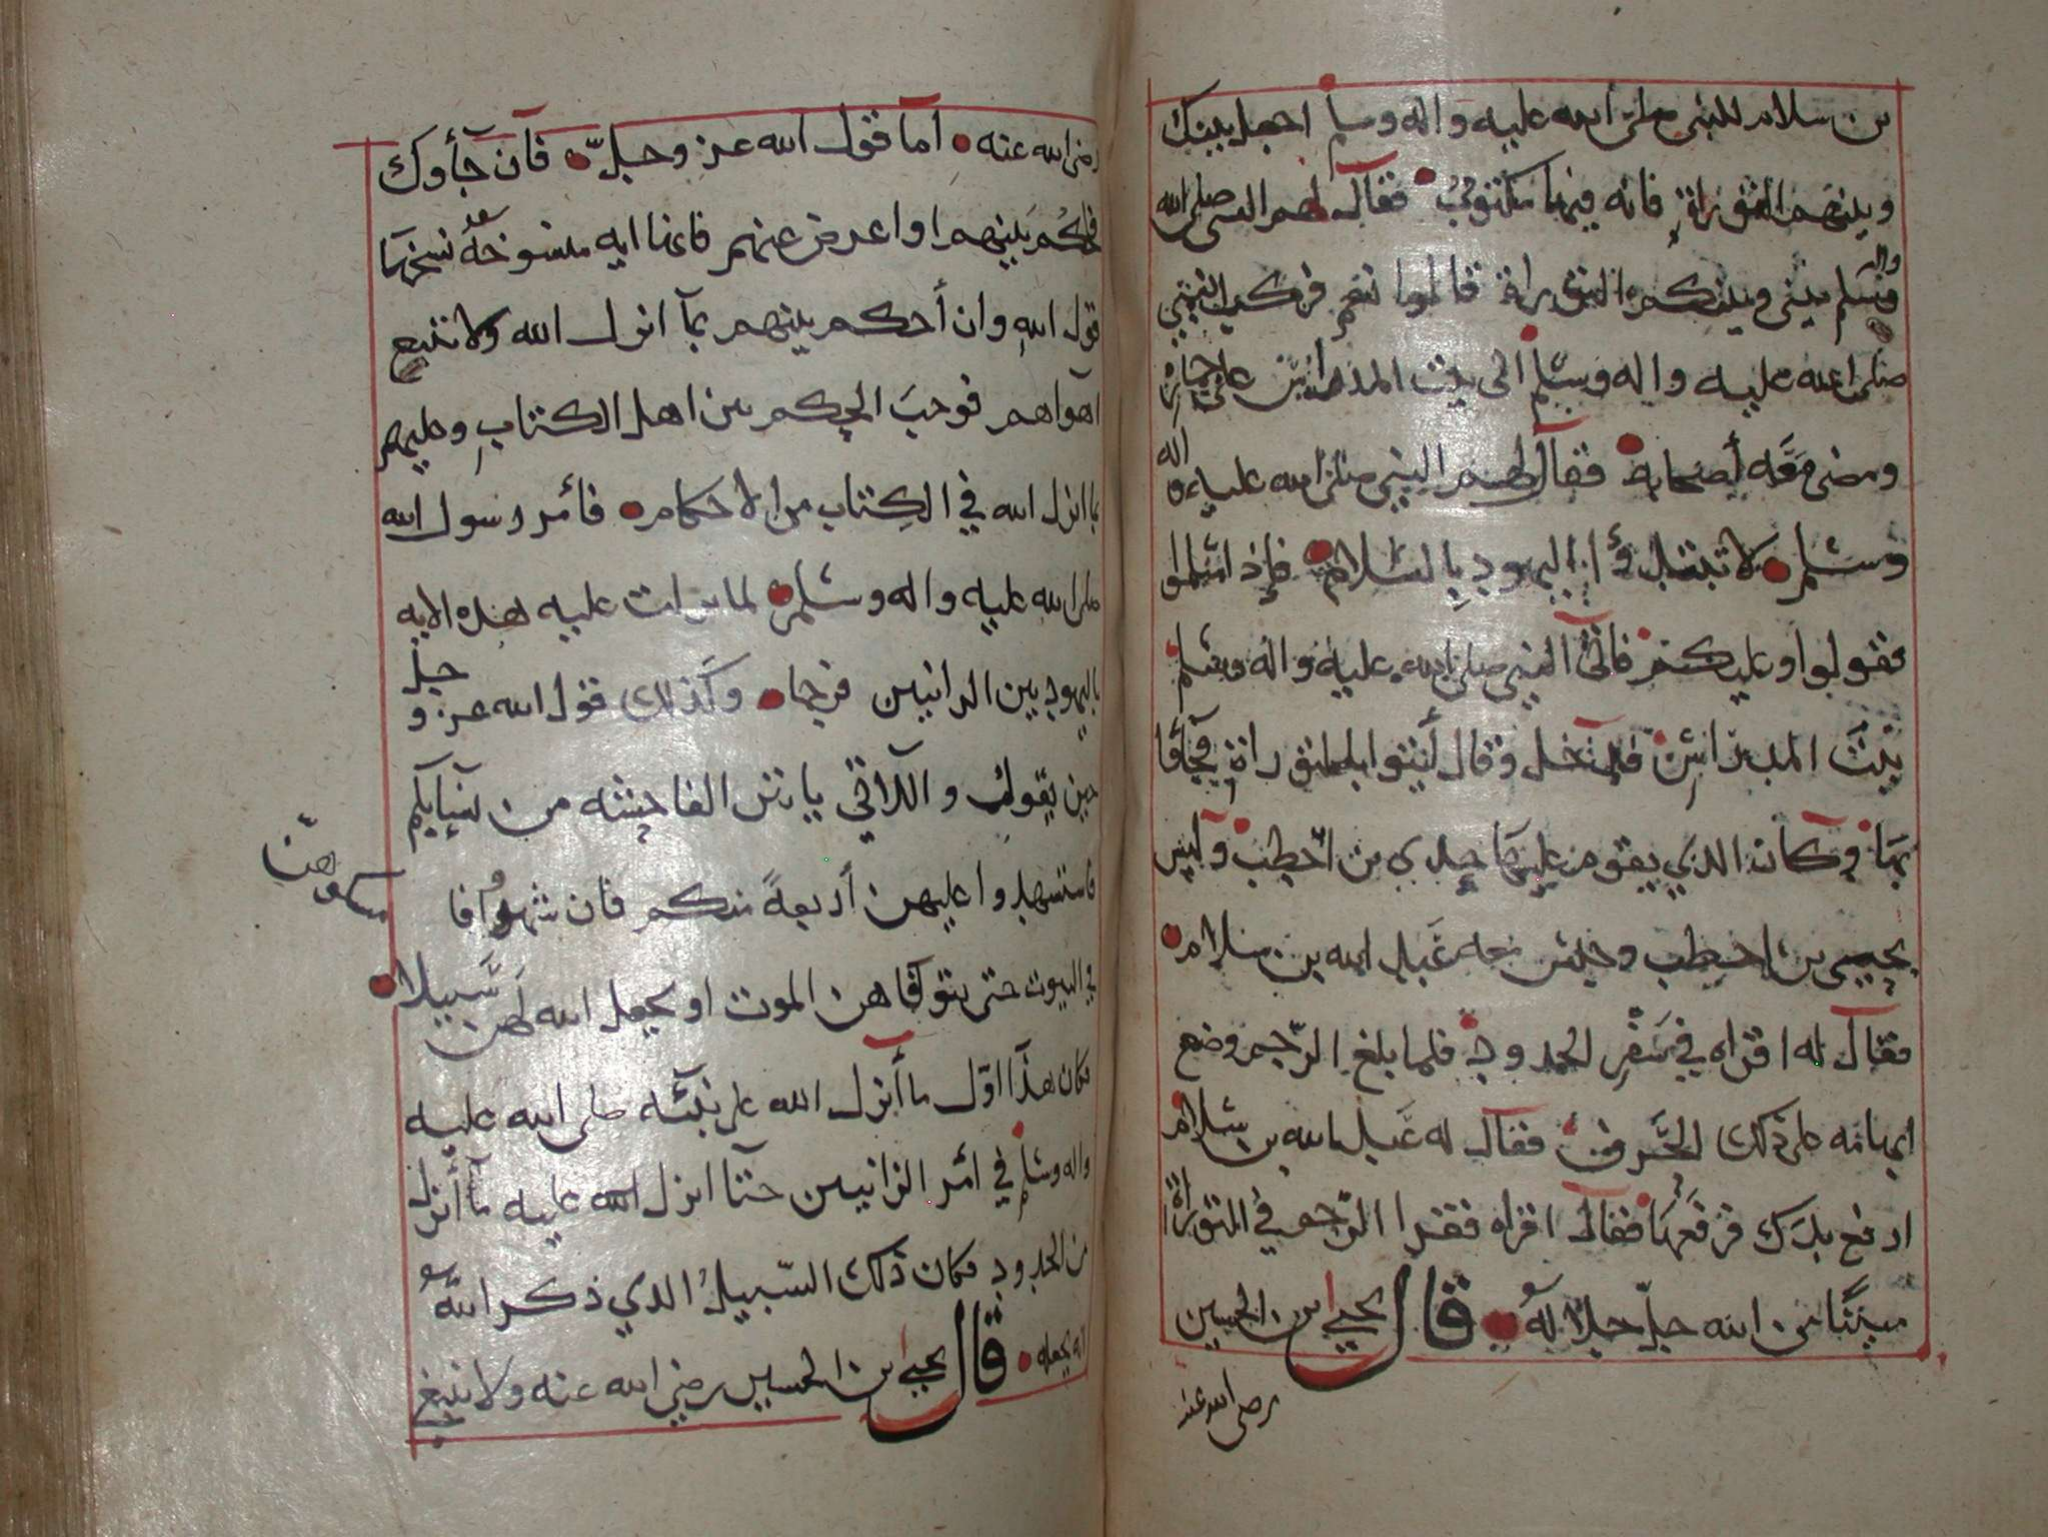 بن سلام للنبي صلى الله عليه واله وسلم اجعل بينك
وبينهم التوراة فانه فيها مكتوب فقال لهم النبي صلى الله
واله وسلم بيني وبينكم التوراة قالوا نعم فركب النبي
صلى الله عليه واله وسلم الى بيت المدراس على حماره
ومضى معه اصحابه فقال لهم النبي صلى الله عليه واله
وسلم لا تبتدؤا اليهود بالسلام فاذا سلموا
فقولوا وعليكم فاتى النبي صلى الله عليه واله وسلم
بيت المدراس فدخل وقال أيتوا بالتوراة فجآؤا
بها وكان الذي يقوم عليها جدي بن اخطب وليس
بحيي بن اخطب وجلس معه عبد الله بن سلام
فقال له اقراه في سفر الحدود فلما بلغ الرجم وضع
ابهامه على ذلك الحرف فقال له عبد الله بن سلام
ارفع يدك فرفعها فقال اقراه فقرا الرجم في التوراة
مبيَّنا من الله جل جلاله قال يحيى ابن الحسين
رضي الله عنه
رضي الله عنه اما قول الله عز وجل فان جآؤك
فاحكم بينهم او اعرض عنهم فانها ايه منسوخة نسخها
قول الله وان أحكم بينهم بمآ انزل الله ولا تتبع
اهواهم فوجب الحكم بين اهل الكتاب وعليهم
بما انزل الله في الكتاب من الاحكام فأمر رسول الله
صلى الله عليه واله وسلم لما نزلت عليه هذه الايه
باليهوديين الزانيين فرجما وكذلك قول الله عز وجل
حين يقول واللاتي ياتين الفاحشه من نسآيكم
فاستشهدوا عليهن أربعةً منكم فان شهدوا فا
مسكوهن
في البيوت حتى يتوفاهن الموت او يجعل الله لهن سبيلا
فكان هذا اوّل ما أنزل الله على نبيّه صلى الله عليه
واله وسلم في أمر الزانيين حتا انزل الله عليه مآ أنزل
من الحدود فكان ذلك السّبيلُ الذي ذكر اللهُ
انه يجعله قال يحيى ابن الحسين رضي الله عنه ولا ينبغي